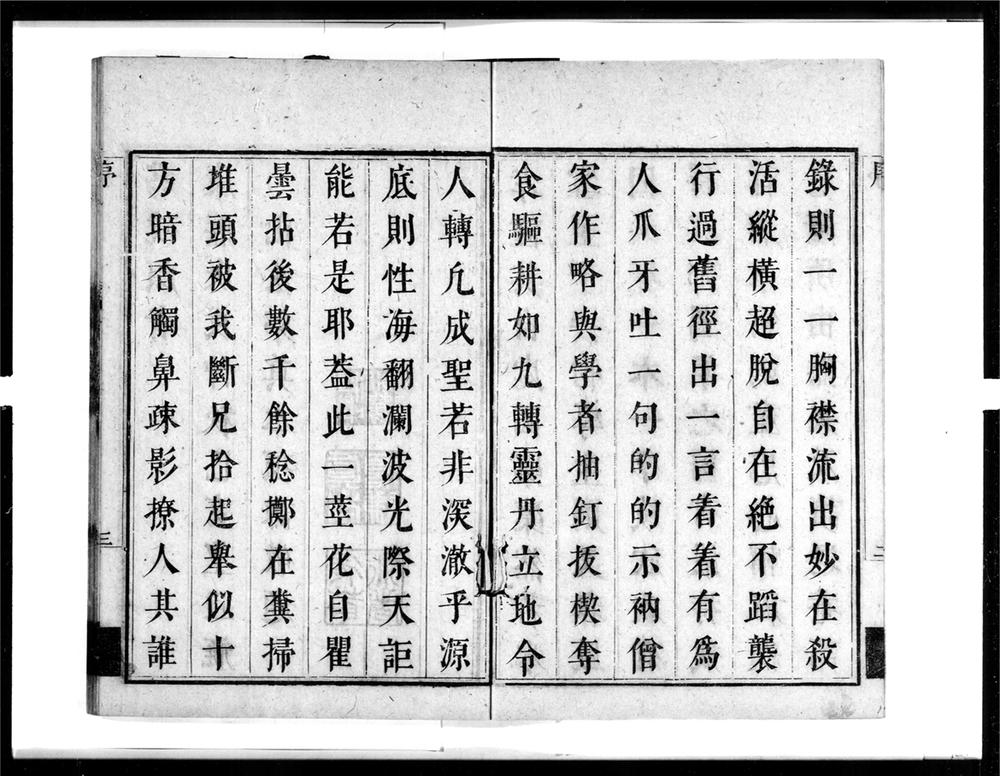 錄則一一胸襟流出妙在殺
活縱橫超脫自在絕不蹈襲
行過舊徑出一言着着有爲
人爪牙吐一句的的示衲僧
家作略與學者抽釘拔楔奪
食驅耕如九轉靈丹立地令
人轉凡成聖若非深澈乎源
底則性海翻瀾波光際天詎
能若是耶蓋此一莖花自瞿
曇拈後數千餘稔擲在糞掃
堆頭被我斷兄拾起舉似十
方暗香觸鼻疎影撩人其誰
序
三